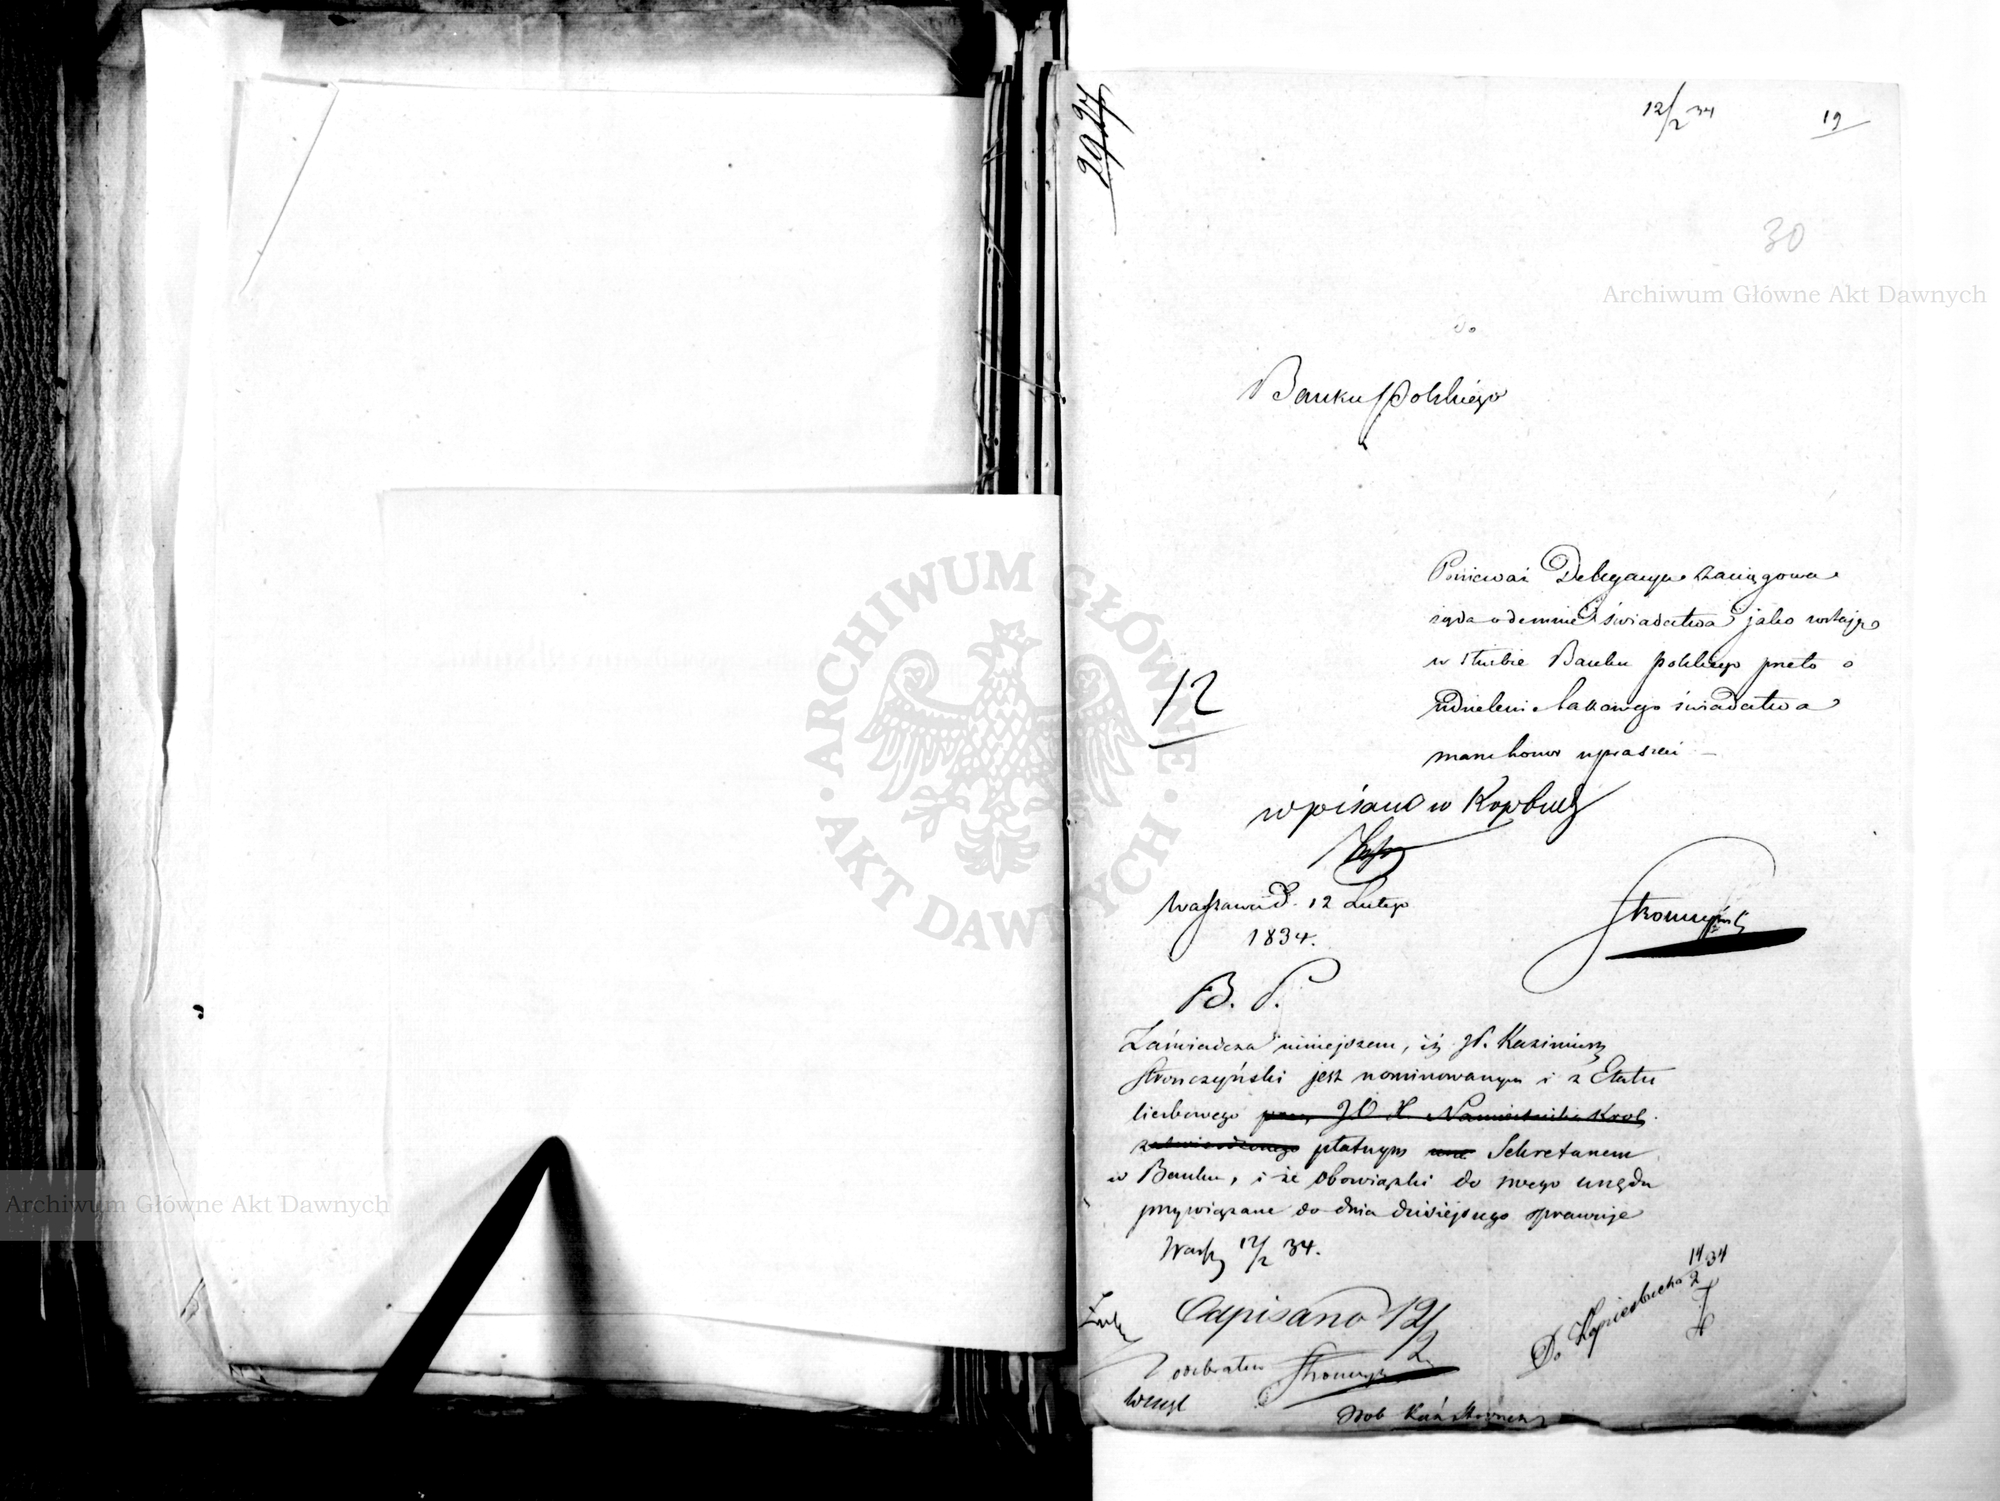 2927
12/2 34
19
30
Archiwum Główne Akt Dawnych
do
Banku Polskiego
Ponieważ Delegacya zaciągowa
żąda odemnie świadectwa jako zostaję
w służbie Banku polskiego przeto o
udzielenie takowego świadectwa
mam honor upraszać
12
wpisano w Kopbuch
Warszawa d. 12 Lutego
1834.
Stronczyński
B. P.
Zaświadcza niniejszem, iż W. Kazimierz
Stronczyński jest nominowanym i z Etatu
liczbowego przez JO X Namiestnika Król.
zatwierdzonego płatnym Sekretarzem
w Banku, i że obowiązki do swego urzędu
przywiązane do dnia dzisiejszego sprawuje
Warsz 12/2 34.
Do Kopiesbucha 14/2 34
Odpisano 12/2
odebrałem Stronczyń
ARCHIWUM GŁÓWNE
AKT DAWNYCH
Archiwum Główne Akt Dawnych